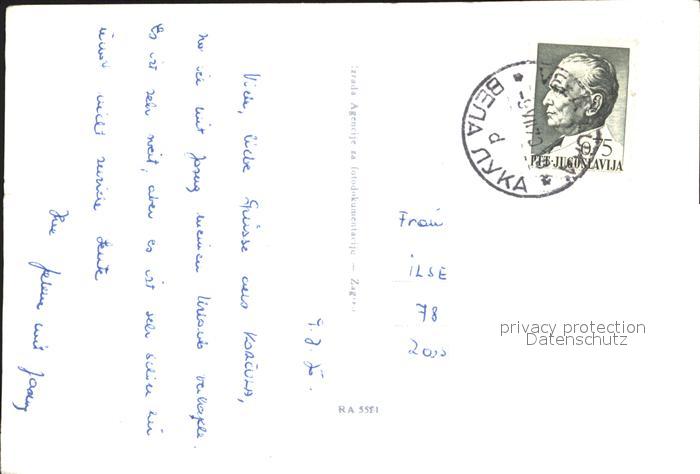 Viele, liebe Grüsse aus KORČULA,
wo ich mit Jasng meinen Urlaub verbringe.
Es ist sehr weit, aber es ist sehr schön hier
und nicht Leute
Ihre Jelena mit
Izrada Agencije za fotodokumentaciju — Zagreb
RA 5551
БЕЛА ЛУКА
VELA LUKA
0,75
PTT-JUGOSLAVIJA
Frau
ILSE
78
privacy protection
Datenschutz